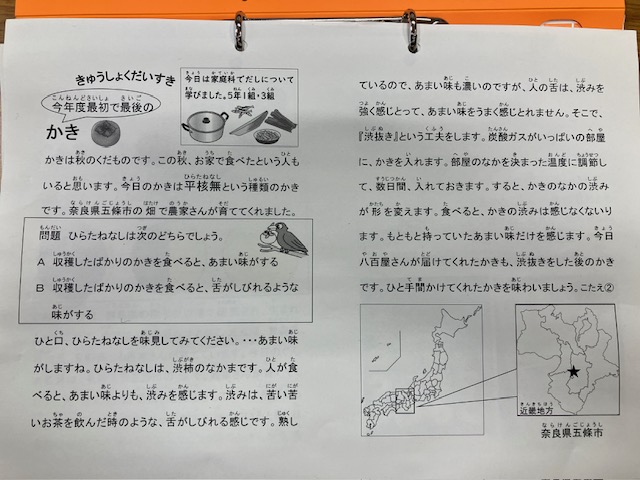 きゅうしょくだいすき
今日は家庭科でだしについて
学びました。5年1組・3組
今年度最初で最後の
かき
かきは秋のくだものです。この秋、お家で食べたという人も
いると思います。今日のかきは平核無という種類のかき
です。奈良県五條市の畑で農家さんが育ててくれました。
問題 ひらたねなしは次のどちらでしょう。
A 収穫したばかりのかきを食べると、あまい味がする
B 収穫したばかりのかきを食べると、舌がしびれるような
味がする
ひと口、ひらたねなしを味見してみてください。・・・あまい味
がしますね。ひらたねなしは、渋柿のなかまです。人が食
べると、あまい味よりも、渋みを感じます。渋みは、苦い苦
いお茶を飲んだ時のような、舌がしびれる感じです。熟し
ているので、あまい味も濃いのですが、人の舌は、渋みを
強く感じとって、あまい味をうまく感じとれません。そこで、
『渋抜き』という工夫をします。炭酸ガスがいっぱいの部屋
に、かきを入れます。部屋のなかを決まった温度に調節し
て、数日間、入れておきます。すると、かきのなかの渋み
が形を変えます。食べると、かきの渋みは感じなくないり
ます。もともと持っていたあまい味だけを感じます。今日
八百屋さんが届けてくれたかきも、渋抜きをした後のかき
です。ひと手間かけてくれたかきを味わいましょう。こたえ②
近畿地方
奈良県五條市